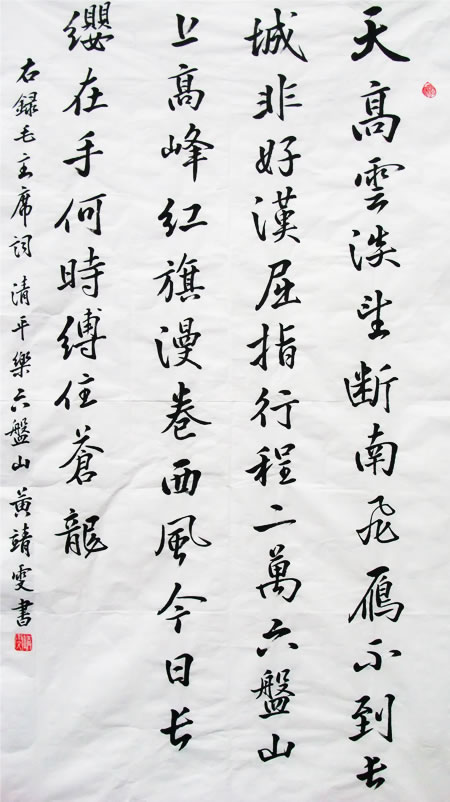 天高雲淡望斷南飛雁不到長
城非好漢屈指行程二萬六盤山
上高峰紅旗漫卷西風今日長
纓在手何時縛住蒼龍
右録毛主席詞清平樂六盤山黃靖雯書